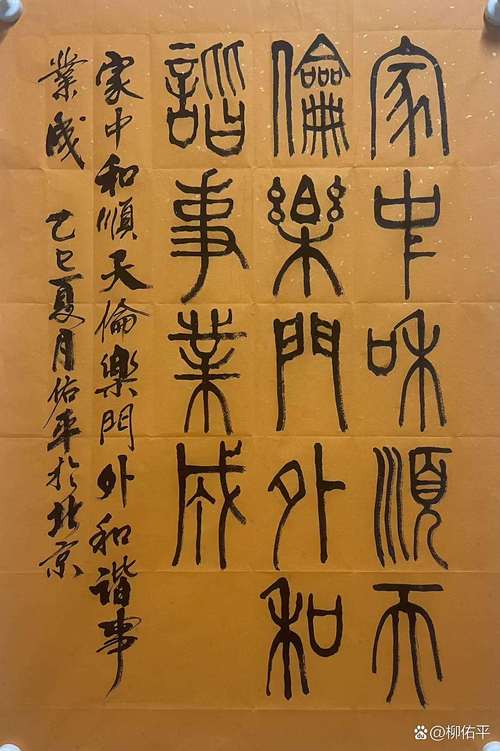 家中和順天
倫樂門外和
諧事業成
家中和順天倫樂門外和谐事
業成 乙巳夏月佑平於北京
@柳佑平